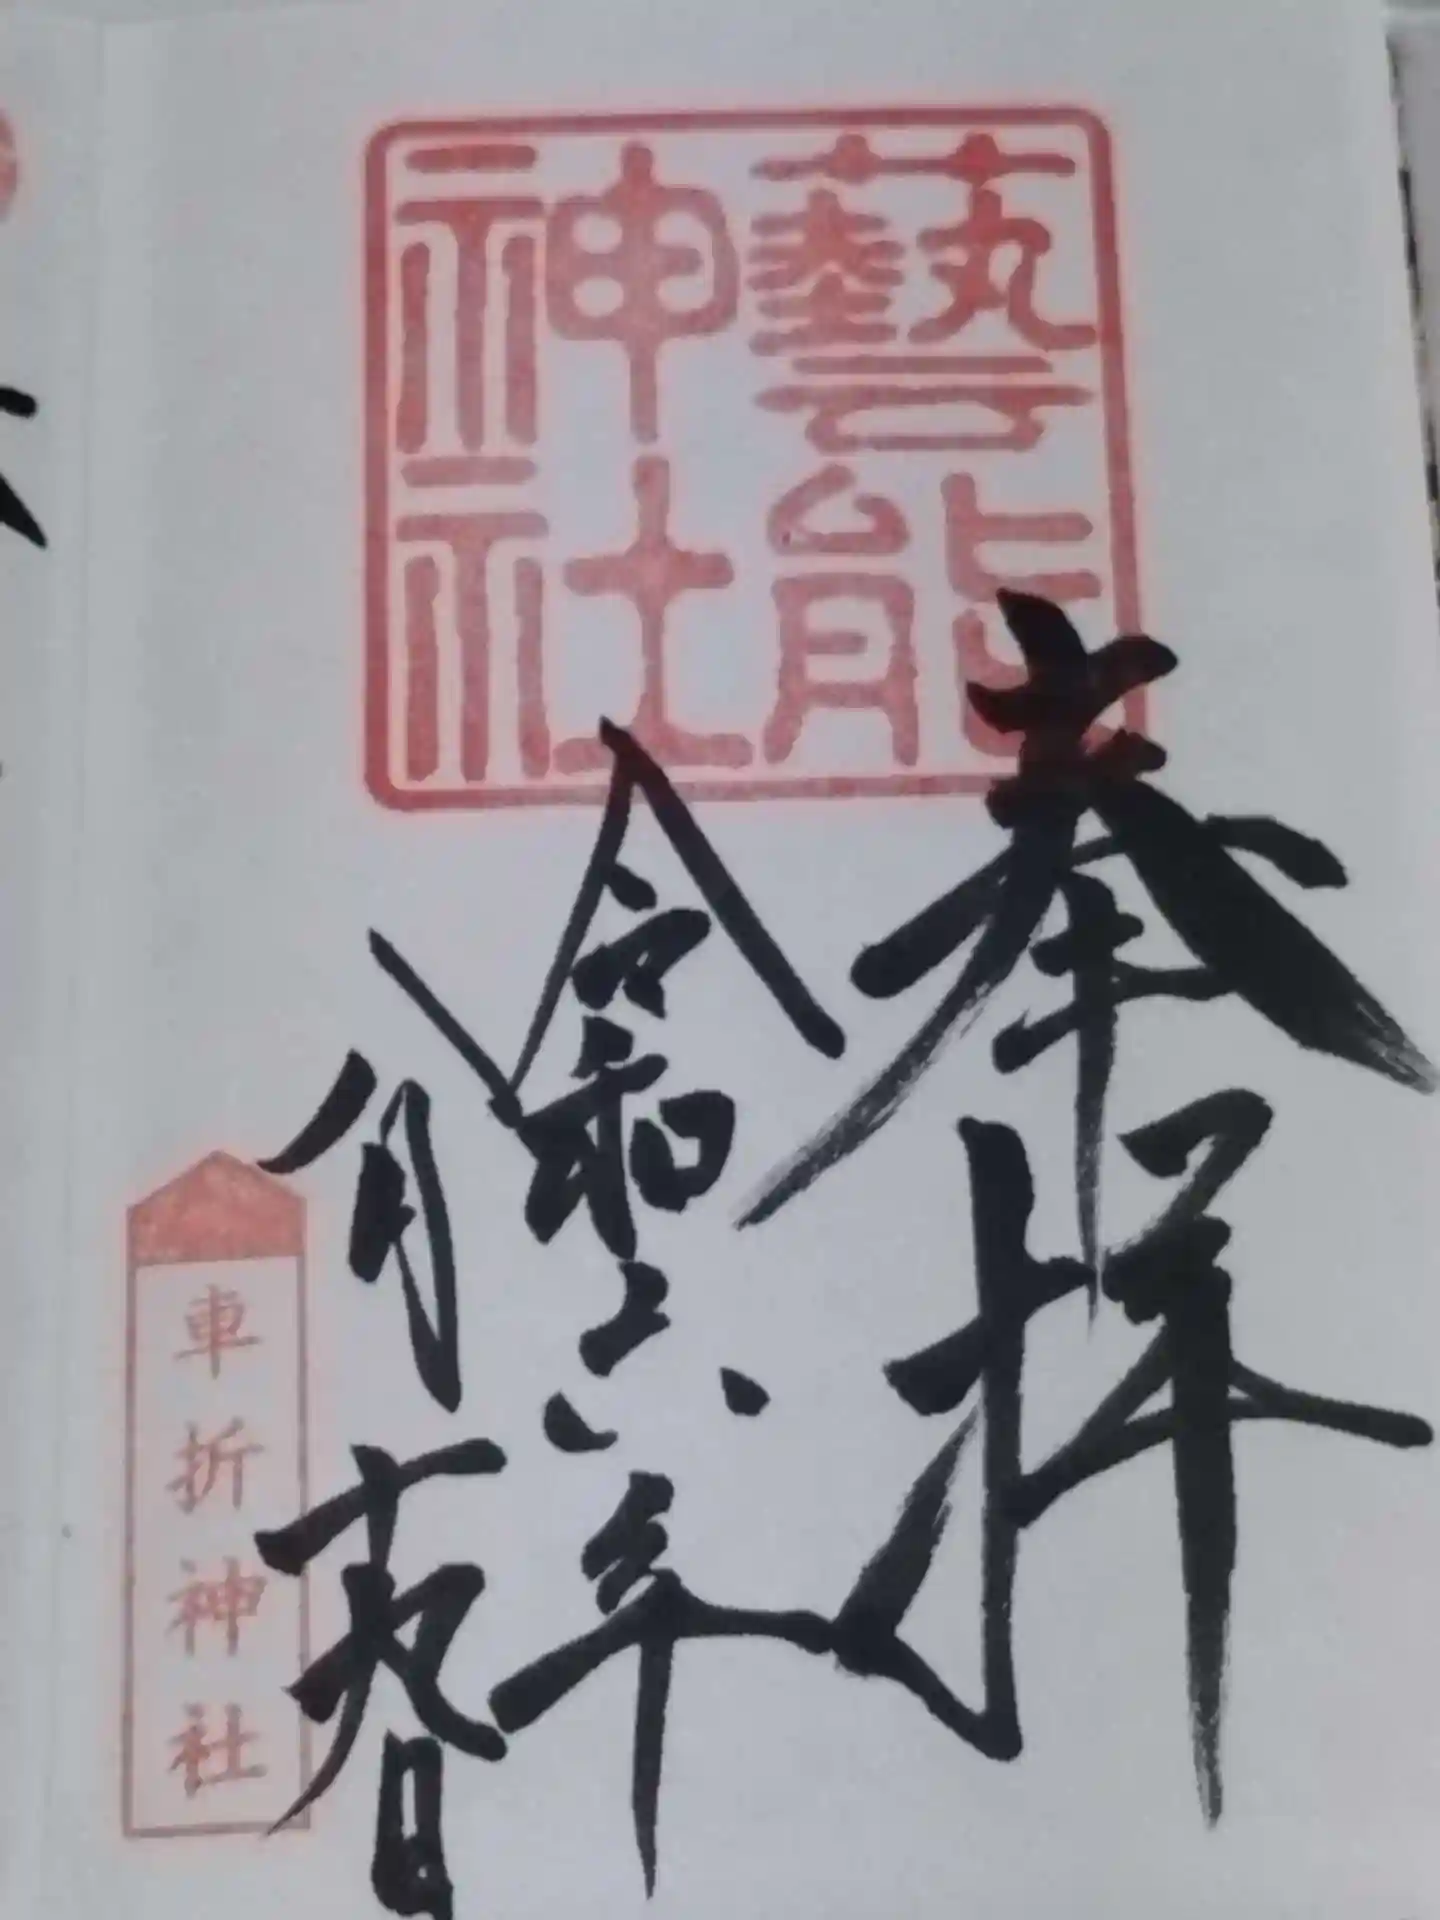 藝能
神社
奉拝
令和六年
八月十九日
車折神社